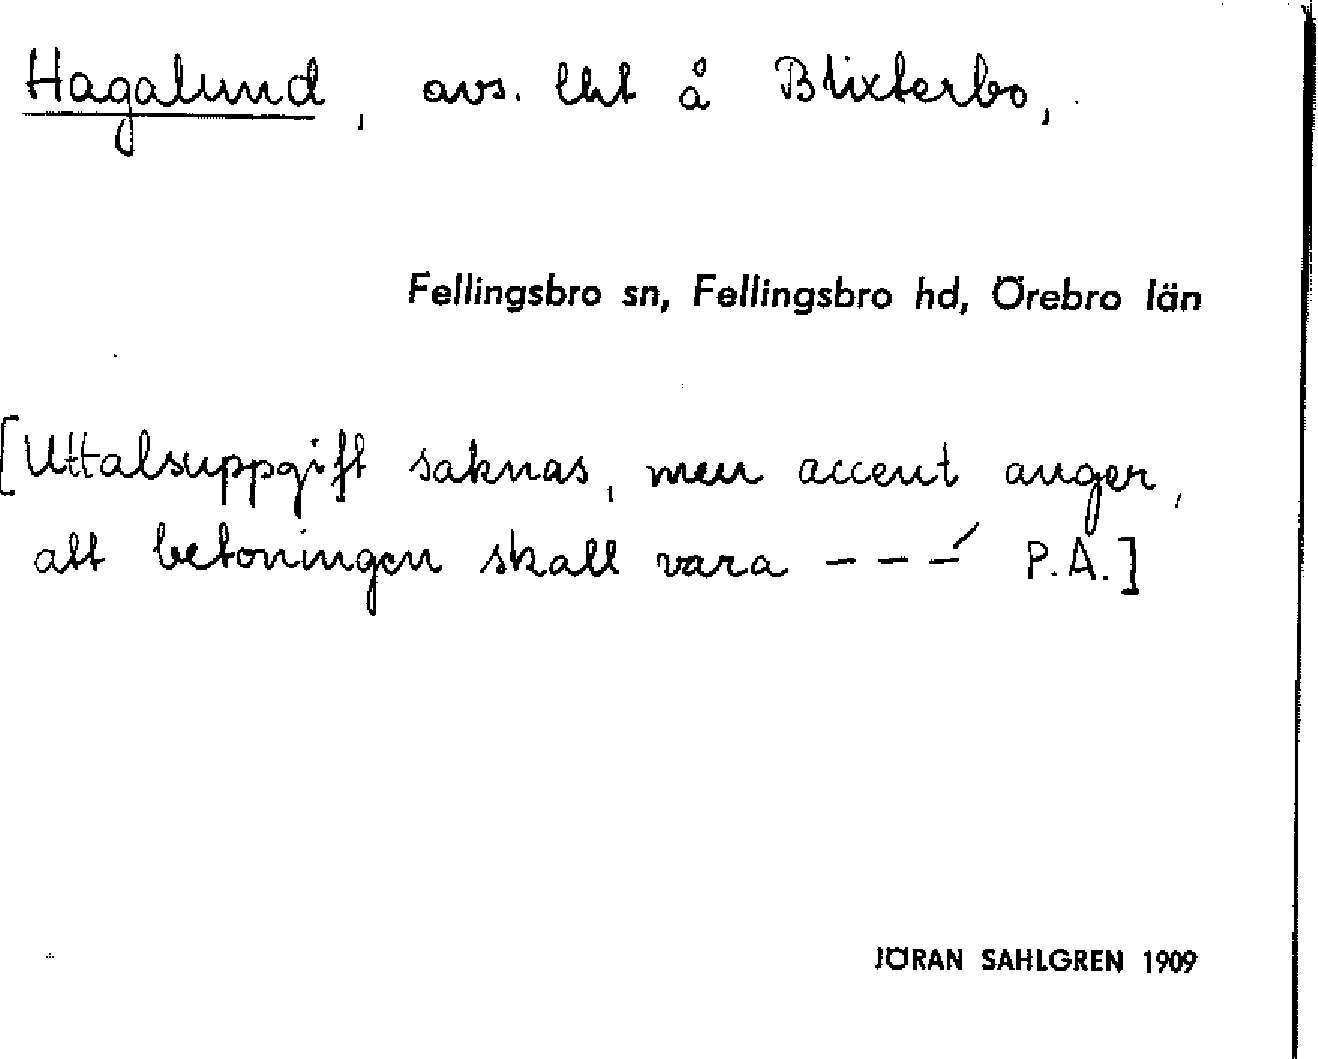 Hagalund, avs. lht å Blixterbo,
Fellingsbro sn, Fellingsbro hd, Örebro län
[Uttalsuppgift saknas, men accent anger,
att betoningen skall vara – – –́ P.A.]
JÖRAN SAHLGREN 1909